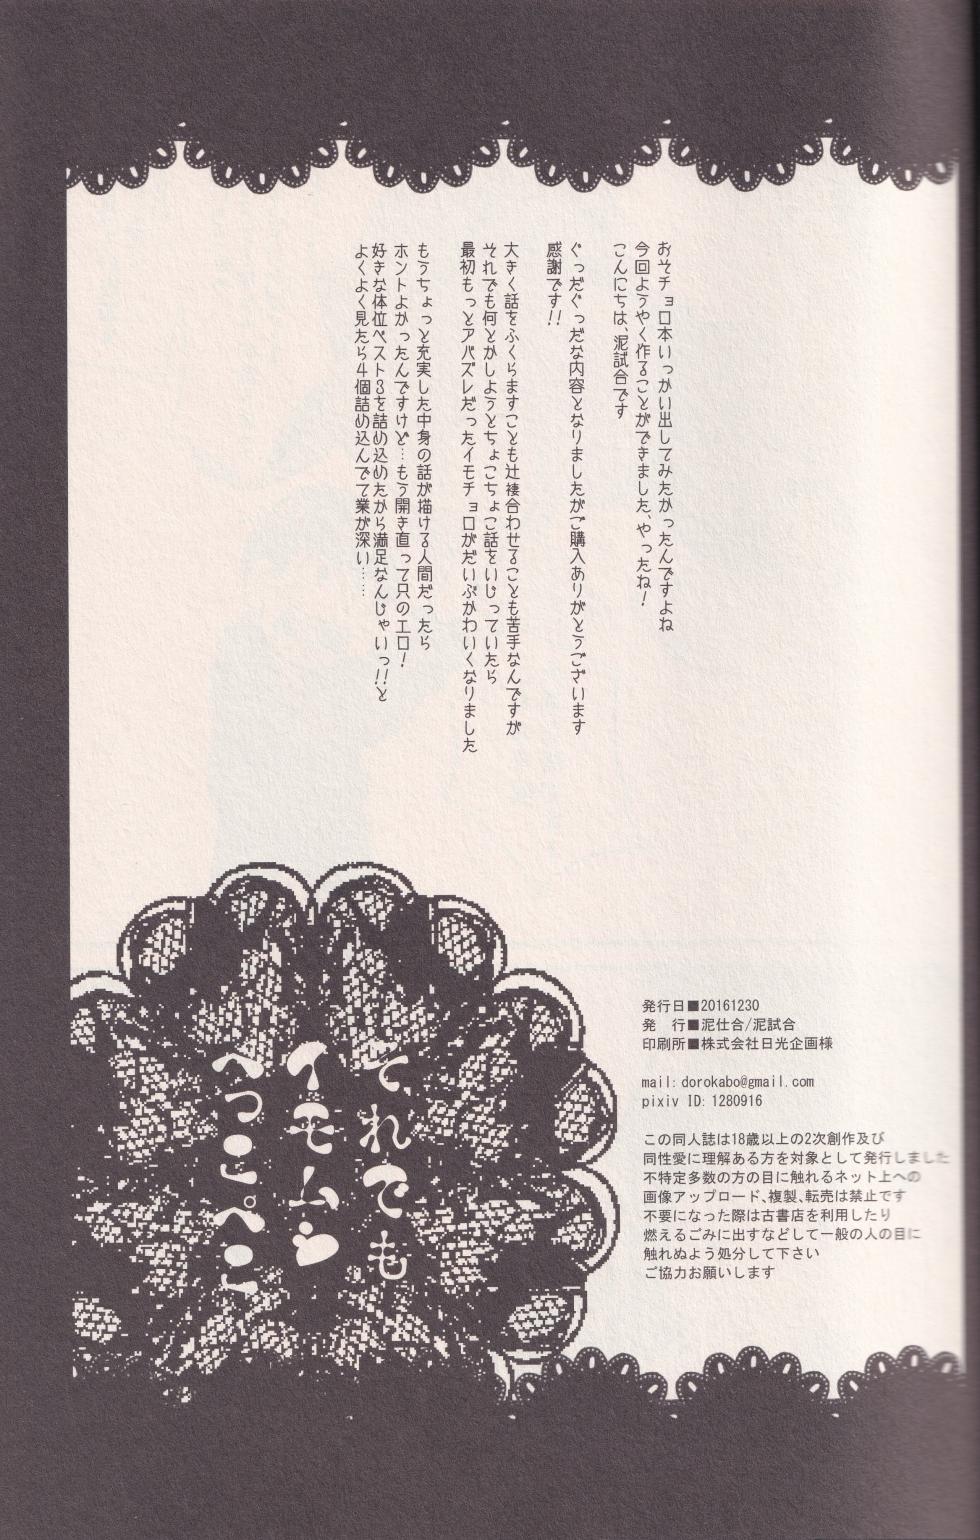 おそチョロ本いっかい出してみたかったんですよね
今回ようやく作ることができました、やったね！
こんにちは、泥試合です
ぐっだぐっだな内容となりましたがご購入ありがとうございます
感謝です!!
大きく話をふくらますことも辻褄合わせることも苦手なんですが
それでも何とかしようとちょこちょこ話をいじっていたら
最初もっとアバズレだったイモチョロがだいぶかわいくなりました
もうちょっと充実した中身の話が描ける人間だったら
ホントよかったんですけど…もう開き直って只のエロ！
好きな体位ベスト3を詰め込めたから満足なんじゃいっ!!と
よくよく見たら4個詰め込んでて業が深い……
それでも
イモムシ
へっこぺこ
発行日■20161230
発　行■泥仕合/泥試合
印刷所■株式会社日光企画様
mail:dorokabo@gmail.com
pixiv ID:1280916
この同人誌は18歳以上の2次創作及び
同性愛に理解ある方を対象として発行しました
不特定多数の方の目に触れるネット上への
画像アップロード、複製、転売は禁止です
不要になった際は古書店を利用したり
燃えるごみに出すなどして一般の人の目に
触れぬよう処分して下さい
ご協力お願いします